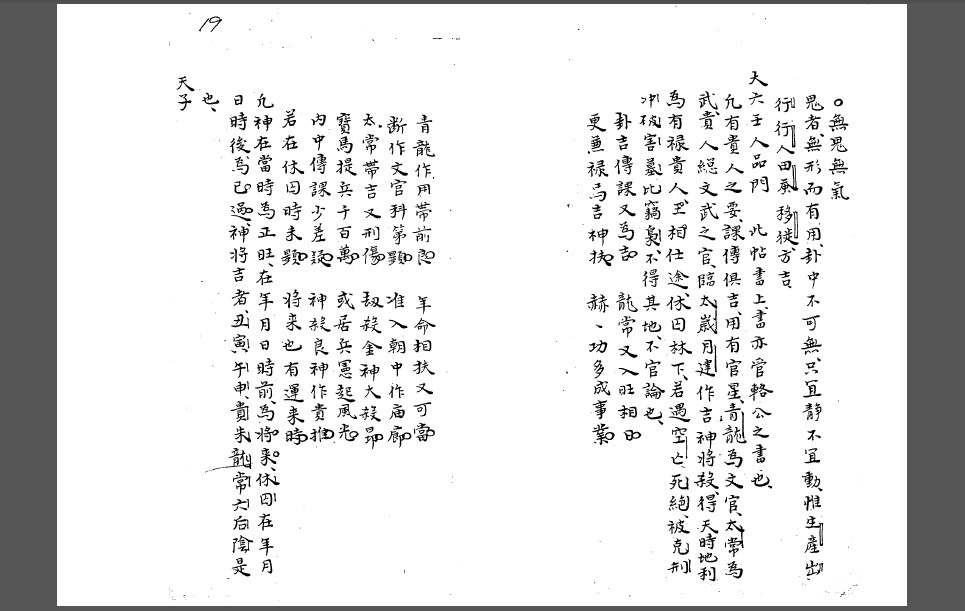 19
○無鬼無氣
鬼者、無形而有用、卦中不可無、只宜静不宜動、惟生產出
行、行人、田蚕、移徙方吉、
大六壬人品門 此帖書上、書亦管輅公之書也、
凢有貴人之要、課傳俱吉、用有官星、青龍為文官、太常為
武貴、人緫文武之官、臨太歲月建作吉神將殺、得天時地利
為有禄貴人、王相仕途、休囚林下、若遇空亡死絕、被克刑
冲破害墓、比竊梟、不得其地、不官論也、
卦吉傳課又為吉 龍常又入旺相日
更兼禄馬吉神扶 赫、功多成事業
青龍作用帶前 年命相扶又可當
断作文官科第顯 准入朝中作庙廊
太常帶吉又刑傷 刼殺金神大殺昂
寶馬提兵千百萬 或居兵憲起風光
內中傳課少差誤 神殺良神作貴推
若在休囚時未顯 將來也有運來時
凢神在當時為正旺、在年月日時前、為將來、休囚在年月
日時後、為已過、神將吉者、丑寅午申貴朱龍常六后陰是
也、
天子